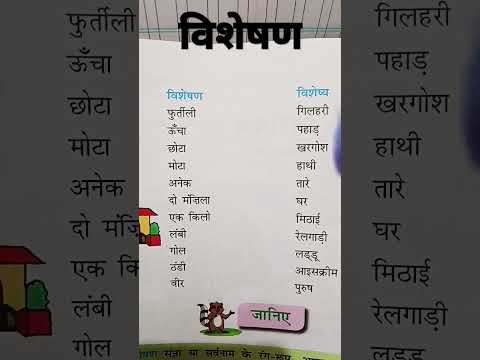 विशेषण
विशेषण विशेष्य
फुर्तीली गिलहरी
ऊँचा पहाड़
छोटा खरगोश
मोटा हाथी
अनेक तारे
दो मंज़िला घर
एक किलो मिठाई
लंबी रेलगाड़ी
गोल लड्डू
ठंडी आइसक्रीम
वीर पुरुष
जानिए
संज्ञा या सर्वनाम के रंग-रूप,
फुर्तीली
ऊँचा
छोटा
मोटा
अनेक
दो मंज़िला
एक कि
लंबी
गोल
गिलहरी
पहाड़
खरगोश
हाथी
तारे
घर
मिठाई
रेलगाड़ी